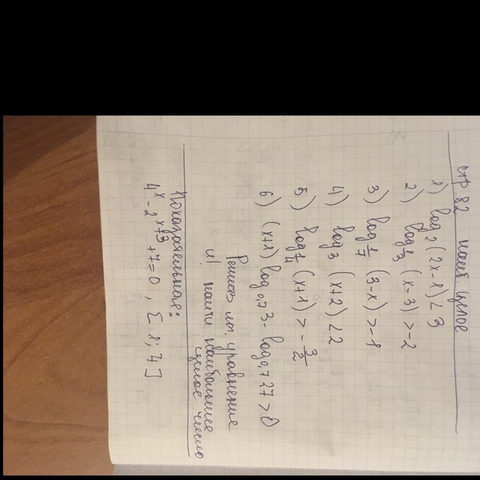 стр 82 наиб целое
1) log₂ (2x-1) < 3
2) log⅓ (x-3) > -2
3) log 1/7 (3-x) > -1
4) log₃ (x+2) < 2
5) log ¼ (x+1) > -3/2
6) (x+1) log₀,₇3 - log₀,₇27 > 0
Решить лог. уравнение
и найти наибольшее
целое число
Показательная:
4ˣ - 2ˣ⁺³ + 7 = 0, [-1; 4]